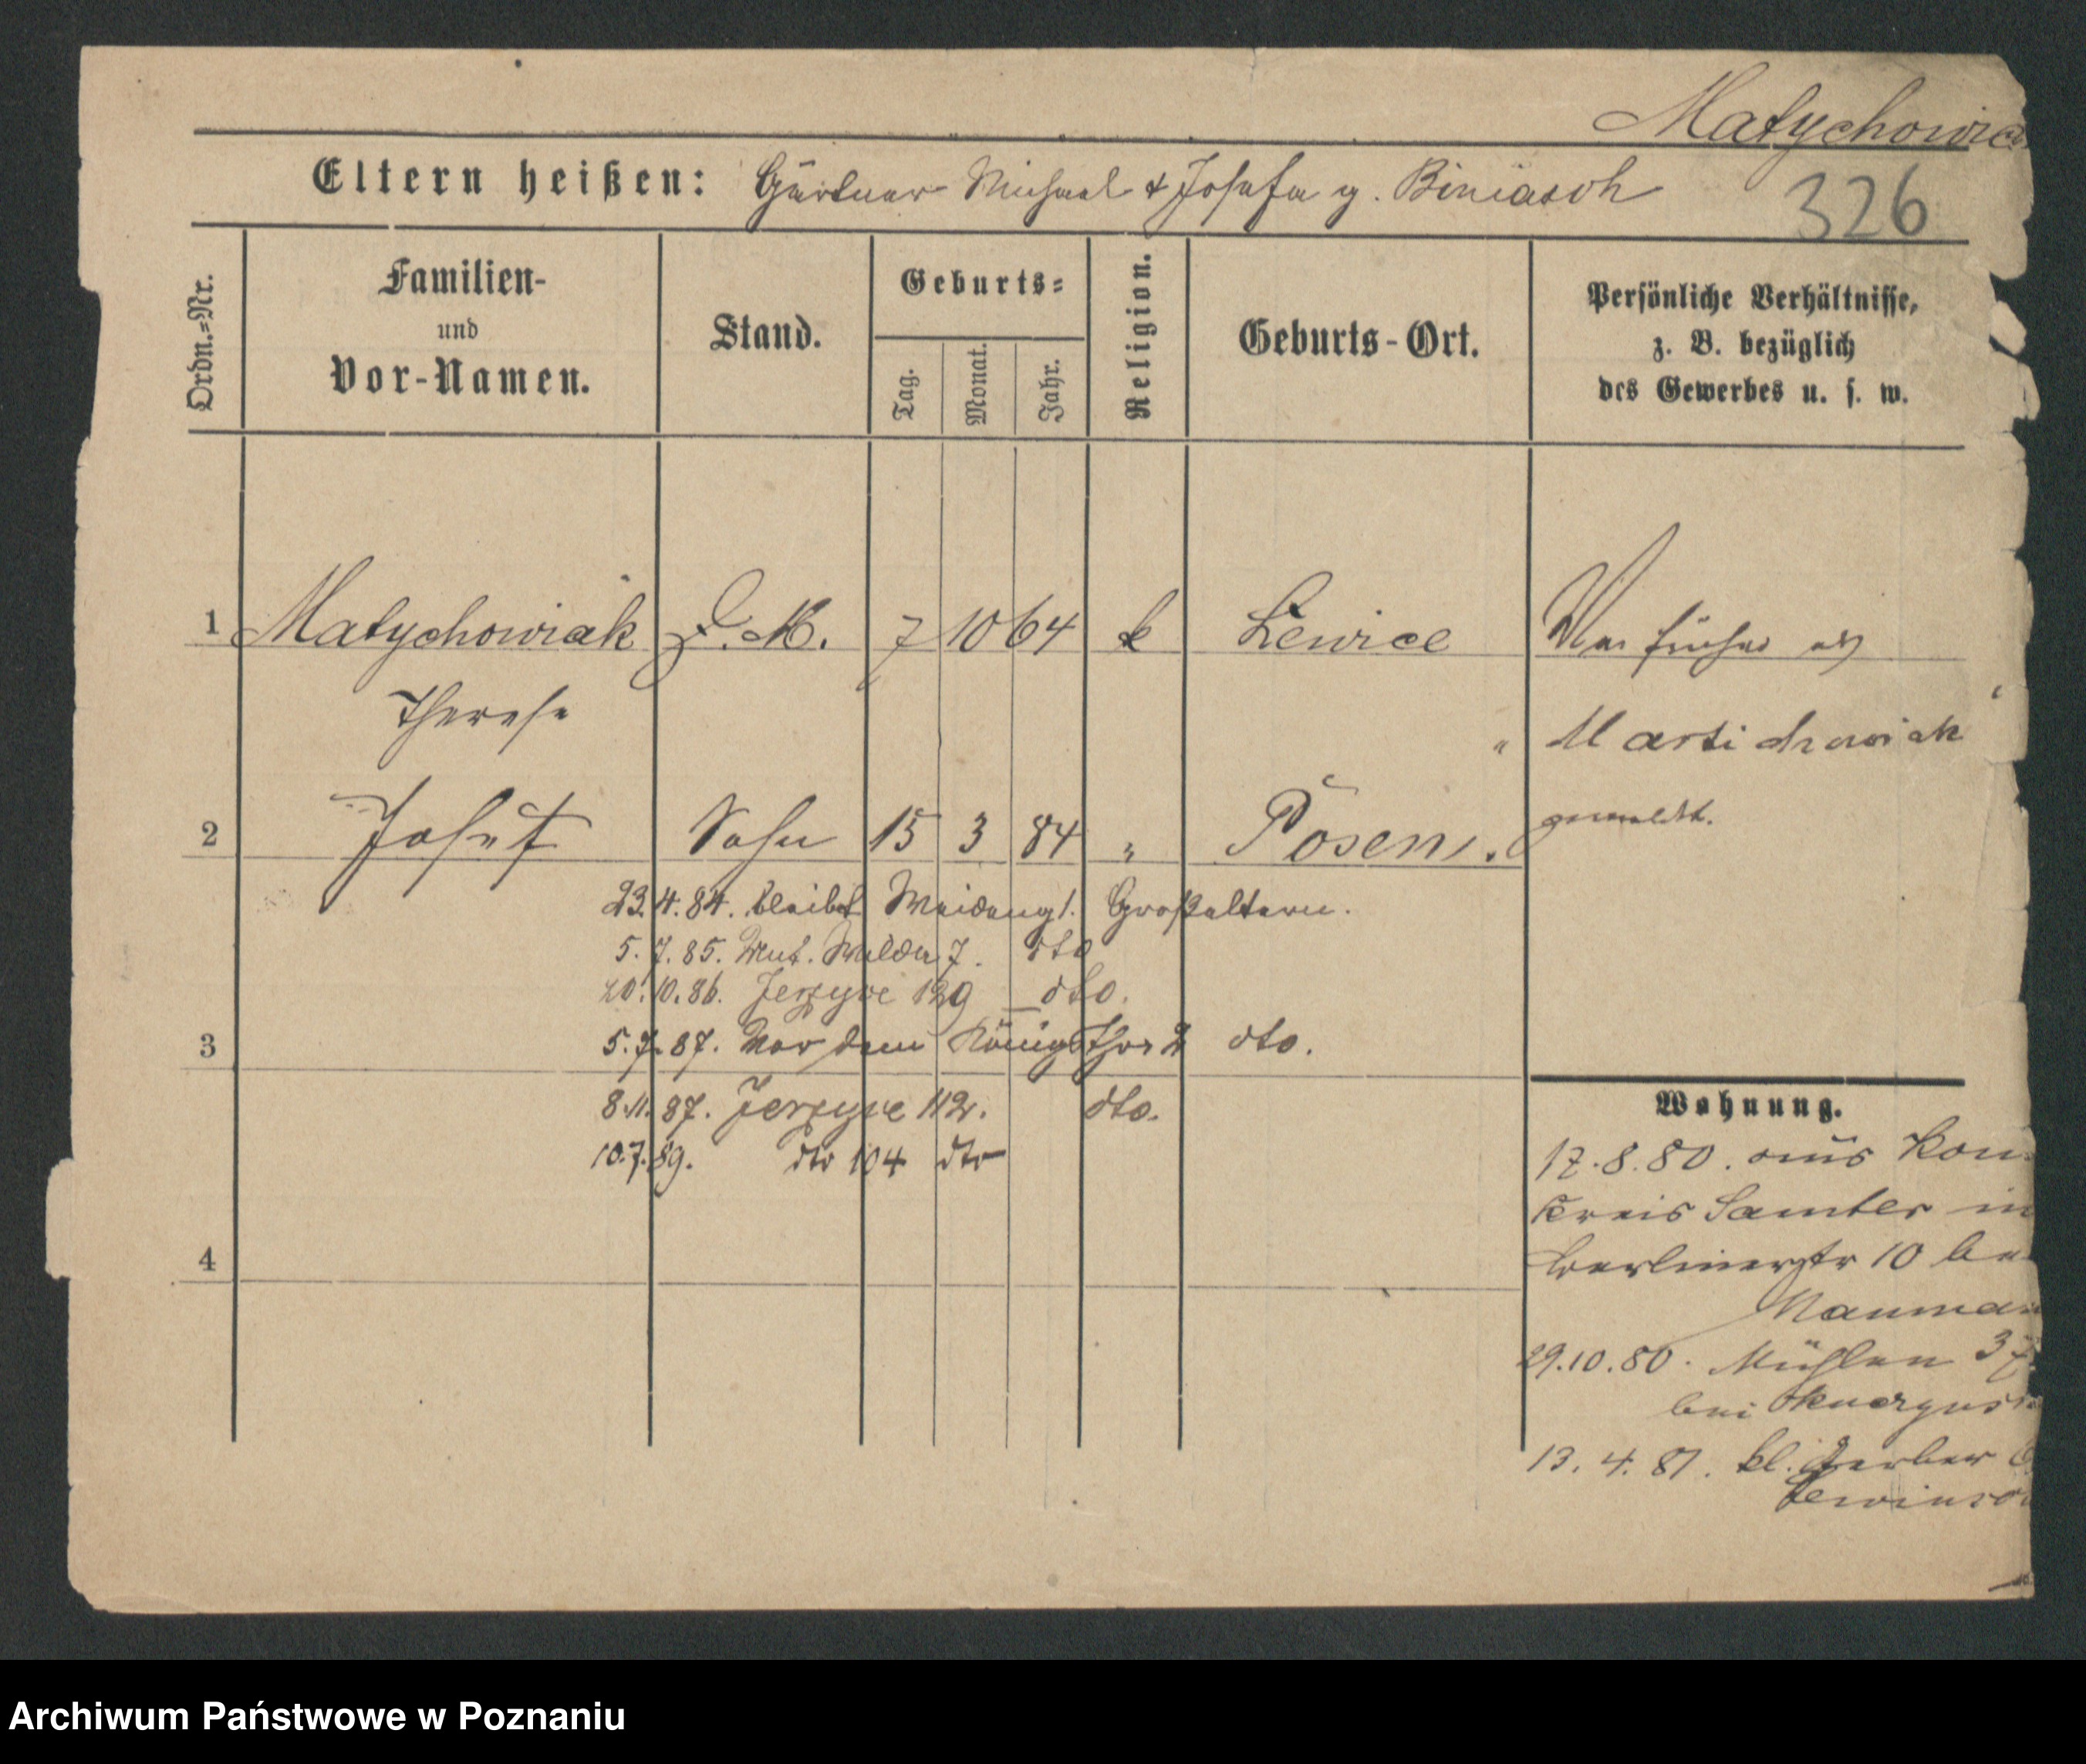 Matychowia
Eltern heißen: Gärtner Michael & Josefa g. Biniasch
326
Ordn.=Nr.
Familien-
und
Vor-Namen.
Stand.
Geburts=
Tag.
Monat.
Jahr.
Religion.
Geburts-Ort.
Persönliche Verhältnisse,
z. B. bezüglich
des Gewerbes u. s. w.
1 Matychowiak D. M. 7 10 64 k Lewice War früher als
Therese
" Martichowiak
2 Josef Sohn 15 3 84 " Posen. gemeldt.
23.4.84. bleibt Großeltern.
5.7.85. Wilda 7. dto
20.10.86. Jerzyce 129 dto.
3 5.7.87. Vor dem Königsthor 2 dto.
8.11.87. Jerzyce 112. dto.
10.7.89. dto 104 dto
4
Wohnung.
17.8.80. aus
Kreis Samter in
Berlinerstr 10 be
Nauma
29.10.80. Mühlen 37
bei
13.4.81. kl. Gerber
Archiwum Państwowe w Poznaniu